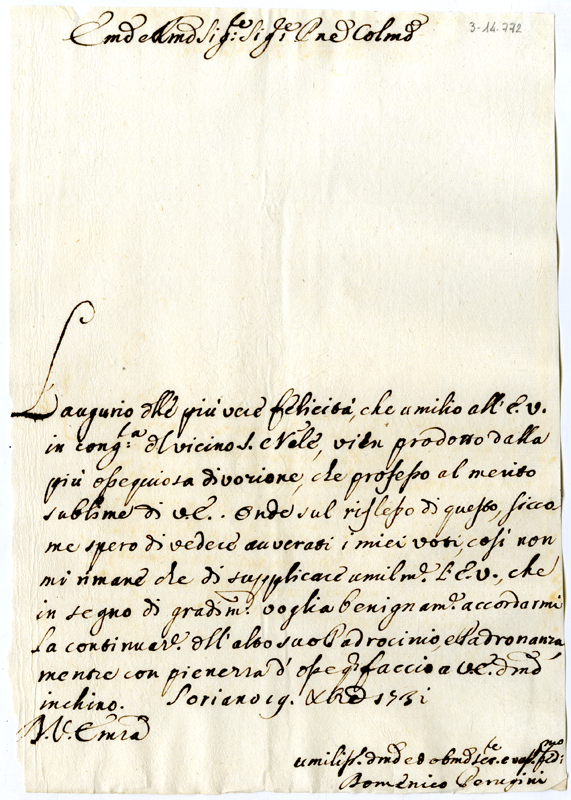 Emo e Rmo Sig:re Sig:re Pne Colmo
3-14.772
L'augurio dlle più vere felicità, che umilio all' E.V.
in cong:ra dl vicino S. Nale, vien prodotto dalla
più ossequiosa divozione, che professo al merito
sublime di V.E.. Onde sul riflesso di questo, sicco
me spero di vedere avverati i miei voti, così non
mi rimane che di supplicare umilm.e l'E.V., che
in segno di gradim.o voglia benignam.e accordarmi
la continuaz.e dll' alto suo Padrocinio, e Padronanza
mentre con pienezza d' osseq.o faccio a V.E. dmo
inchino. Soriano 19. Xbre 1731
V. Emza
umiliss. dmo ed obmo ser.re
Domenico Perugini